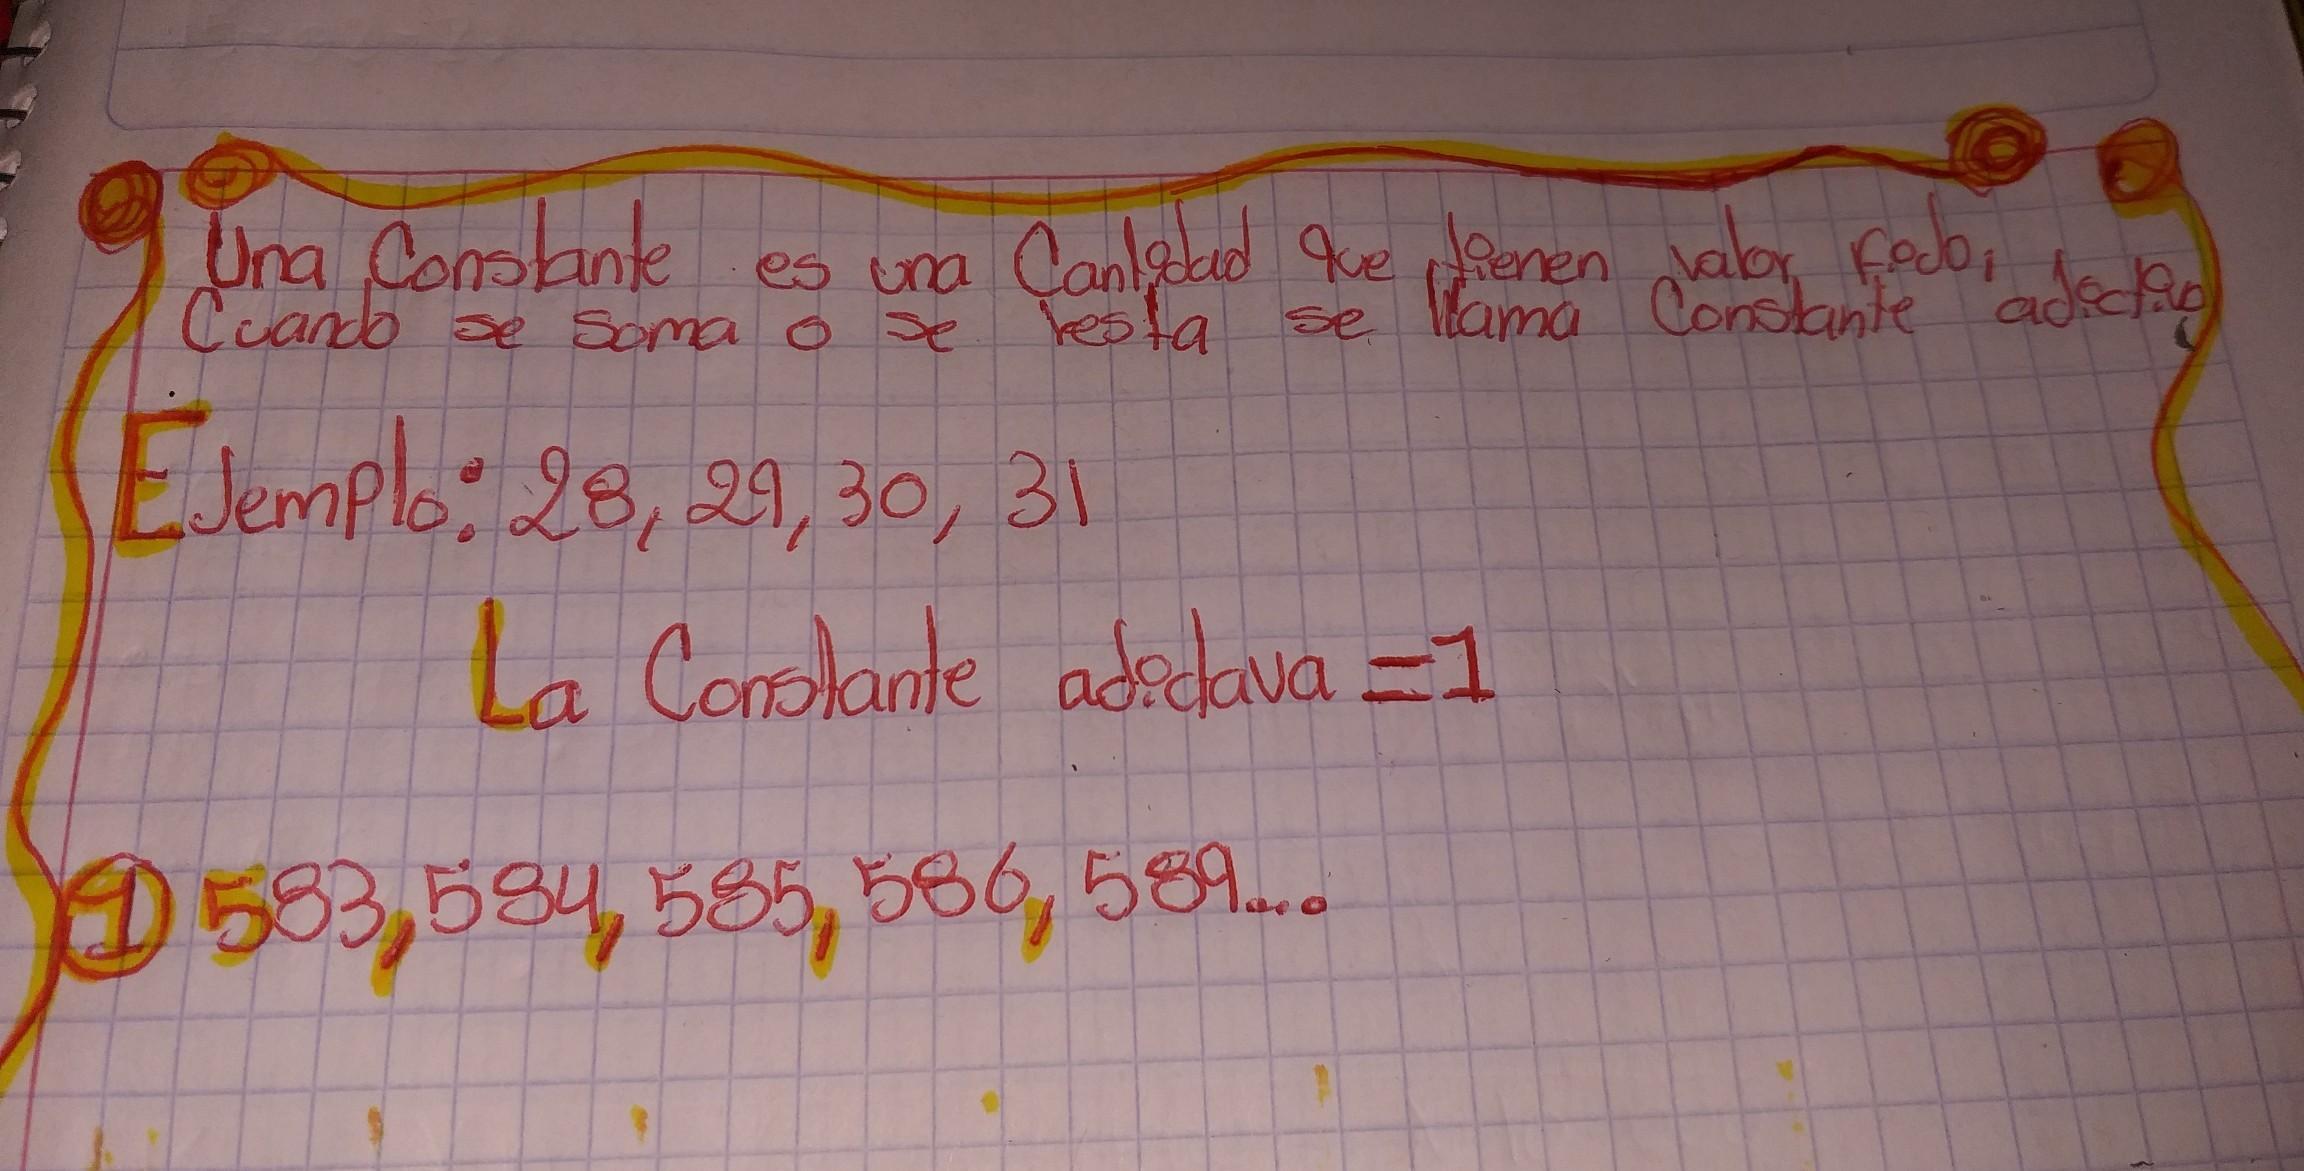 Una Constante es una Cantidad que tienen valor fijo,
Cuando se soma o se resta se llama Constante adictiva
Ejemplo: 28, 29, 30, 31
La Constante adictava = 1
1 583, 584, 585, 586, 589...